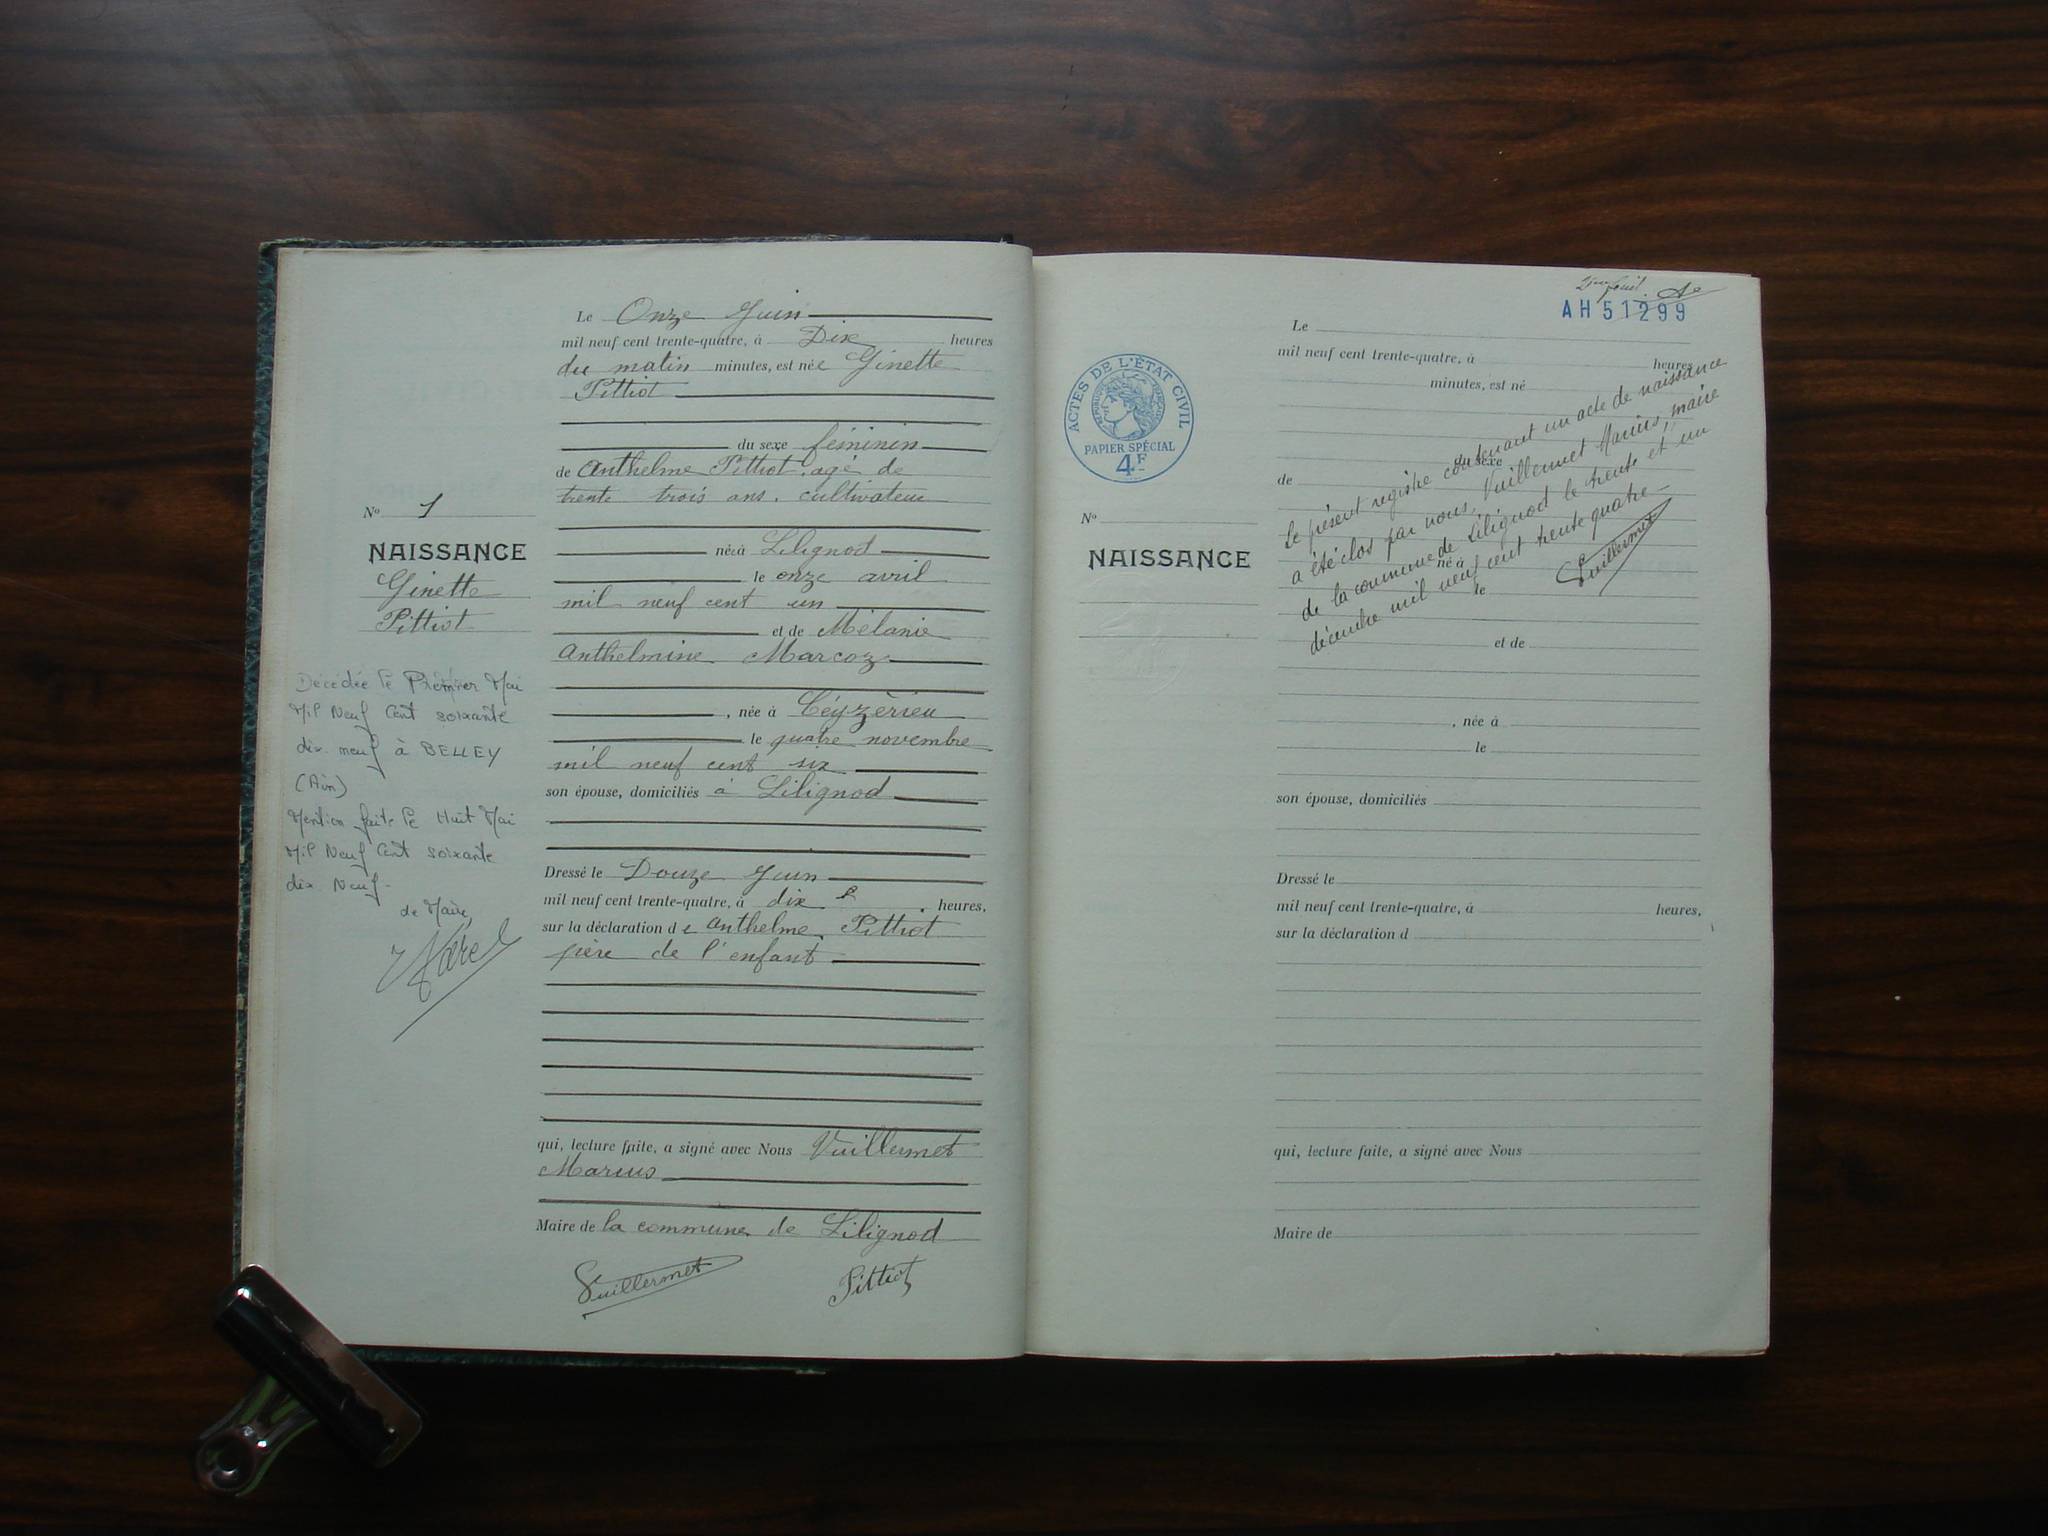 Le Onze Juin
mil neuf cent trente-quatre, à Dix heures
du matin minutes, est née Ginette
Pittiot
du sexe féminin
de Anthelme Pittiot, agé de
trente trois ans, cultivateur
né à Lilignod
le onze avril
mil neuf cent un
et de Mélanie
Anthelmine Marcoz
, née à Céyzèrieu
le quatre novembre
mil neuf cent six
son épouse, domiciliés à Lilignod
Dressé le Douze Juin
mil neuf cent trente-quatre, à dix heures,
sur la déclaration de Anthelme Pittiot
père de l'enfant
qui, lecture faite, a signé avec Nous Vuillermet
Marius
Maire de la commune de Lilignod
Vuillermet Pittiot
No 1
NAISSANCE
Ginette
Pittiot
Décédée le Premier Mai
Mil Neuf Cent soixante
dix neuf à BELLEY
(Ain)
Mention faite le Huit Mai
Mil Neuf Cent soixante
dix Neuf-
Le Maire
AH 51299
ACTES DE L'ÉTAT CIVIL
RÉPUBLIQUE FRANÇAISE
PAPIER SPÉCIAL
4F
No
NAISSANCE
Le
mil neuf cent trente-quatre, à heures
minutes, est né
du sexe
de
né à
le
et de
, née à
le
son épouse, domiciliés
Dressé le
mil neuf cent trente-quatre, à heures,
sur la déclaration d
qui, lecture faite, a signé avec Nous
Maire de
Le présent registre contenant un acte de naissance
a été clos par nous, Vuillermet Marius, maire
de la commune de Lilignod le trente et un
décembre mil neuf cent trente quatre-
Vuillermet